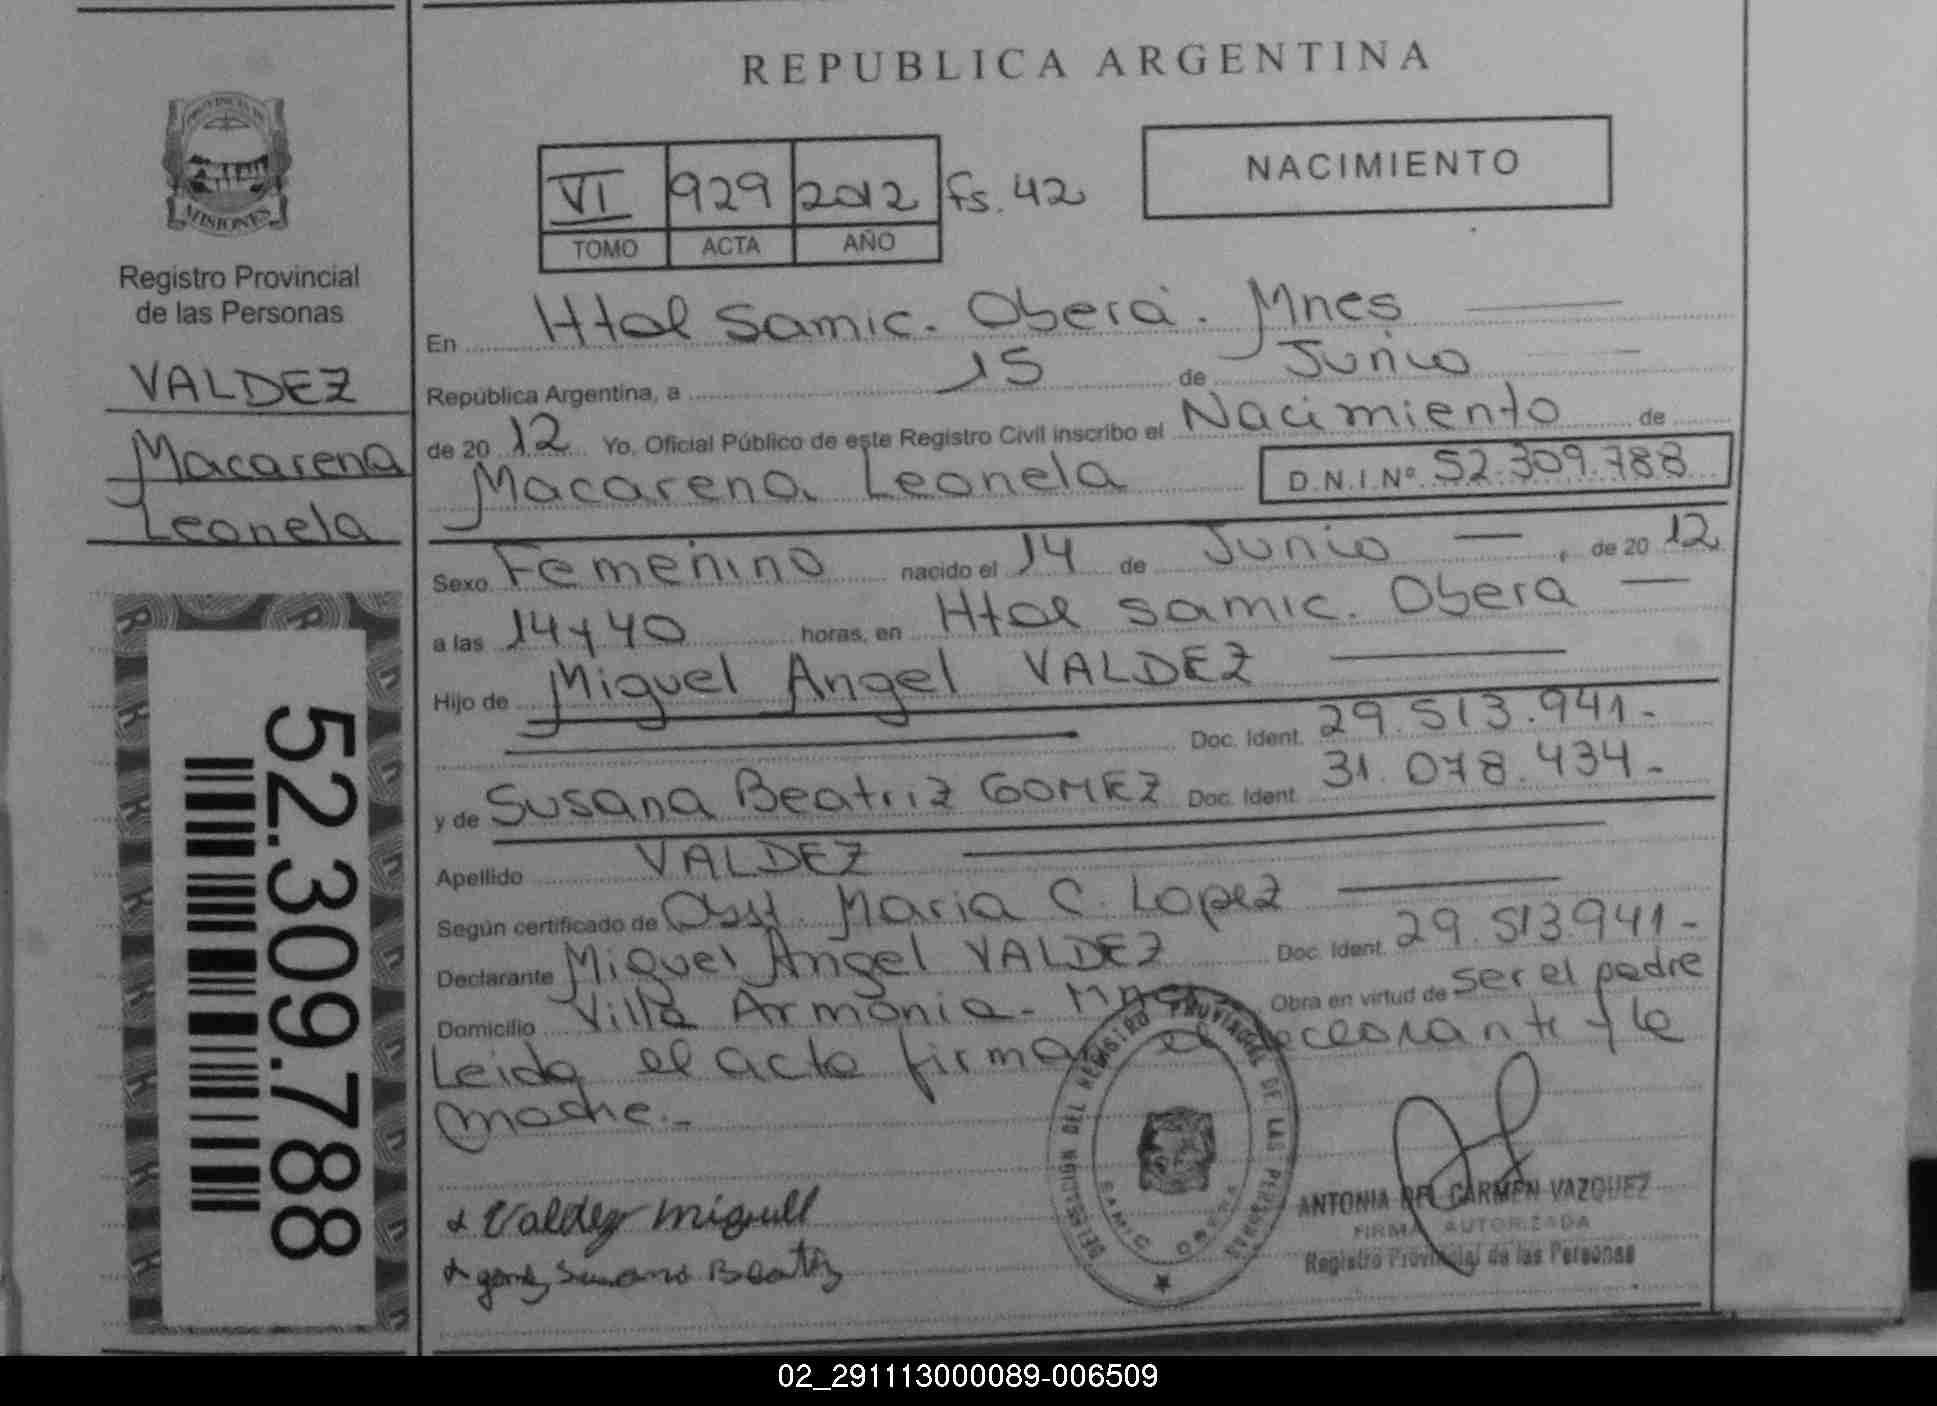 REPUBLICA ARGENTINA
PROVINCIA DE
MISIONES
Registro Provincial
de las Personas
VALDEZ
Macarena
Leonela
52.309.788
VI 929 2012 Fs. 42
TOMO ACTA AÑO
NACIMIENTO
En Htal Samic. Oberá. Mnes
República Argentina, a 15 de Junio
de 20 12 Yo, Oficial Público de este Registro Civil inscribo el Nacimiento de
Macarena Leonela D.N.I. Nº 52.309.788
Sexo Femenino nacido el 14 de Junio , de 20 12
a las 14 y 40 horas, en Htal Samic. Obera
Hijo de Miguel Angel VALDEZ
Doc. Ident. 29.513.941-
y de Susana Beatriz GOMEZ Doc. Ident. 31.078.434-
Apellido VALDEZ
Según certificado de Obst. Maria C. Lopez
Declarante Miguel Angel VALDEZ Doc. Ident. 29.513.941-
Domicilio Villa Armonia - Mnes Obra en virtud de ser el padre
Leida el acta firman el declarante y la
madre.-
Valdez Miguel
Susana Beatriz
DELEGACIÓN DEL REGISTRO PROVINCIAL DE LAS PERSONAS
SAMIC OBERA
ANTONIA DEL CARMEN VAZQUEZ
FIRMA AUTORIZADA
Registro Provincial de las Personas
02_291113000089-006509